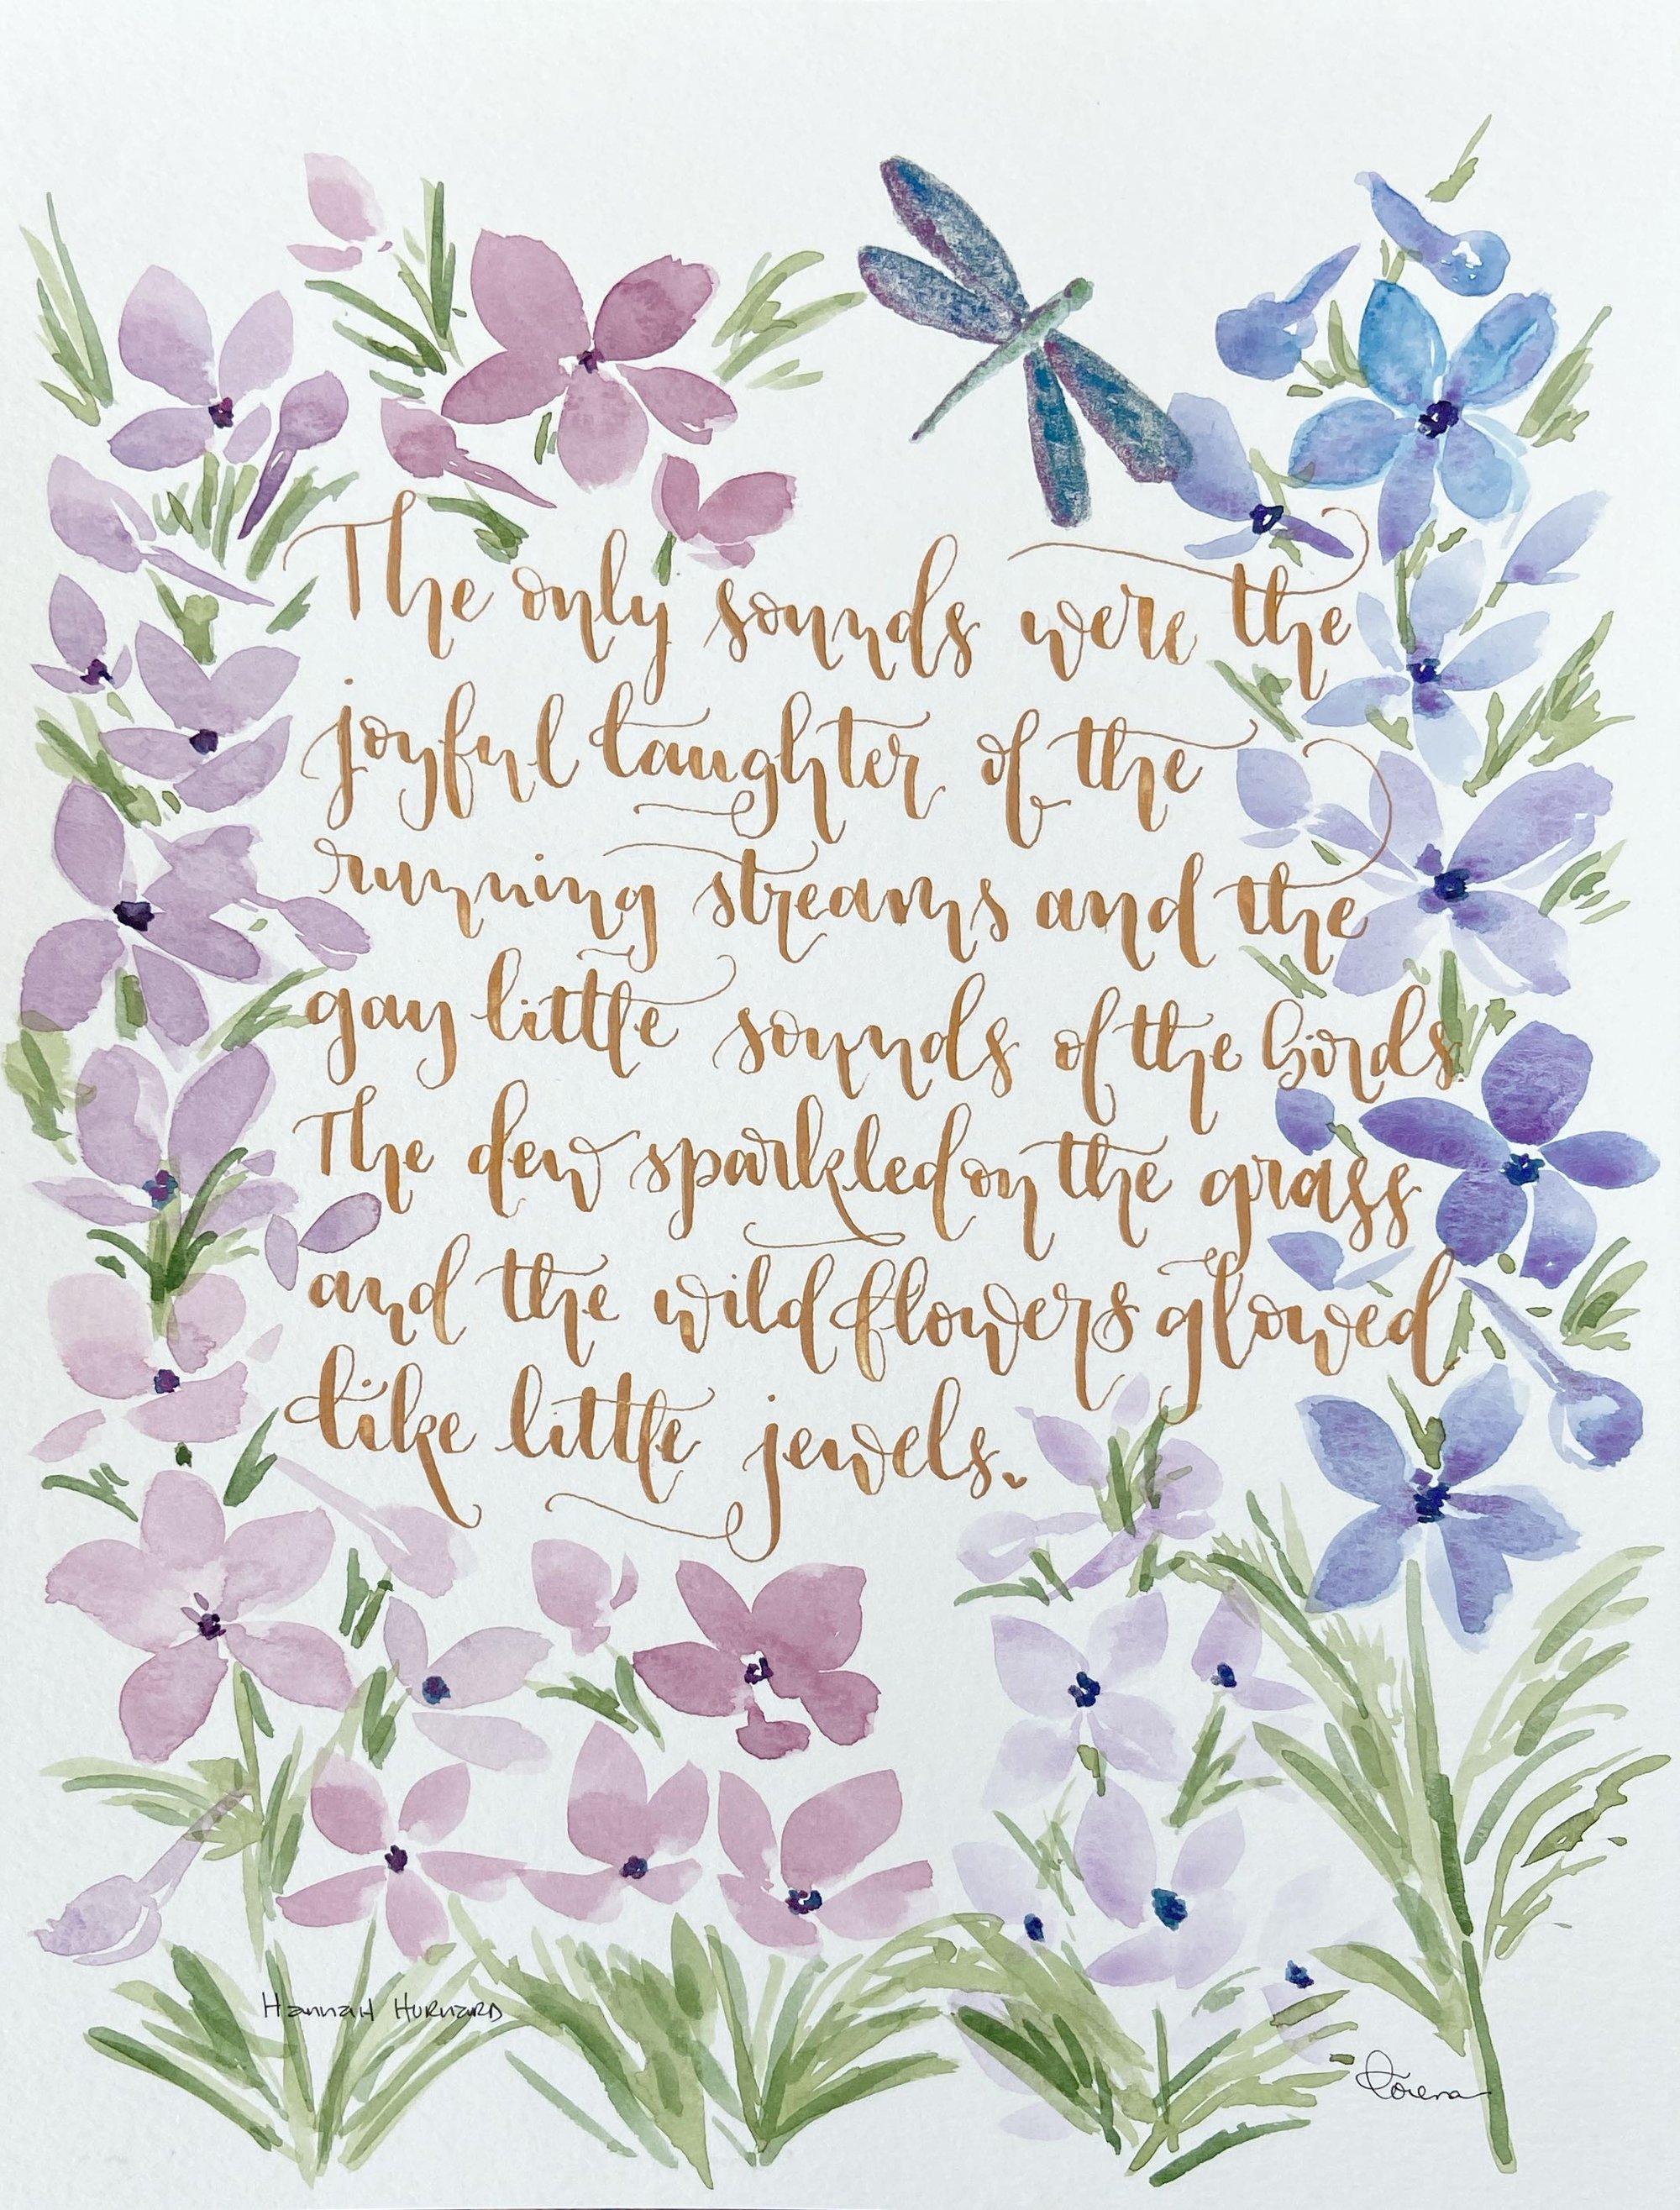 The only sounds were the
joyful laughter of the
running streams and the
gay little sounds of the birds.
The dew sparkled on the grass
and the wild flowers glowed
like little jewels.
Hannah Hurnard
Lorena